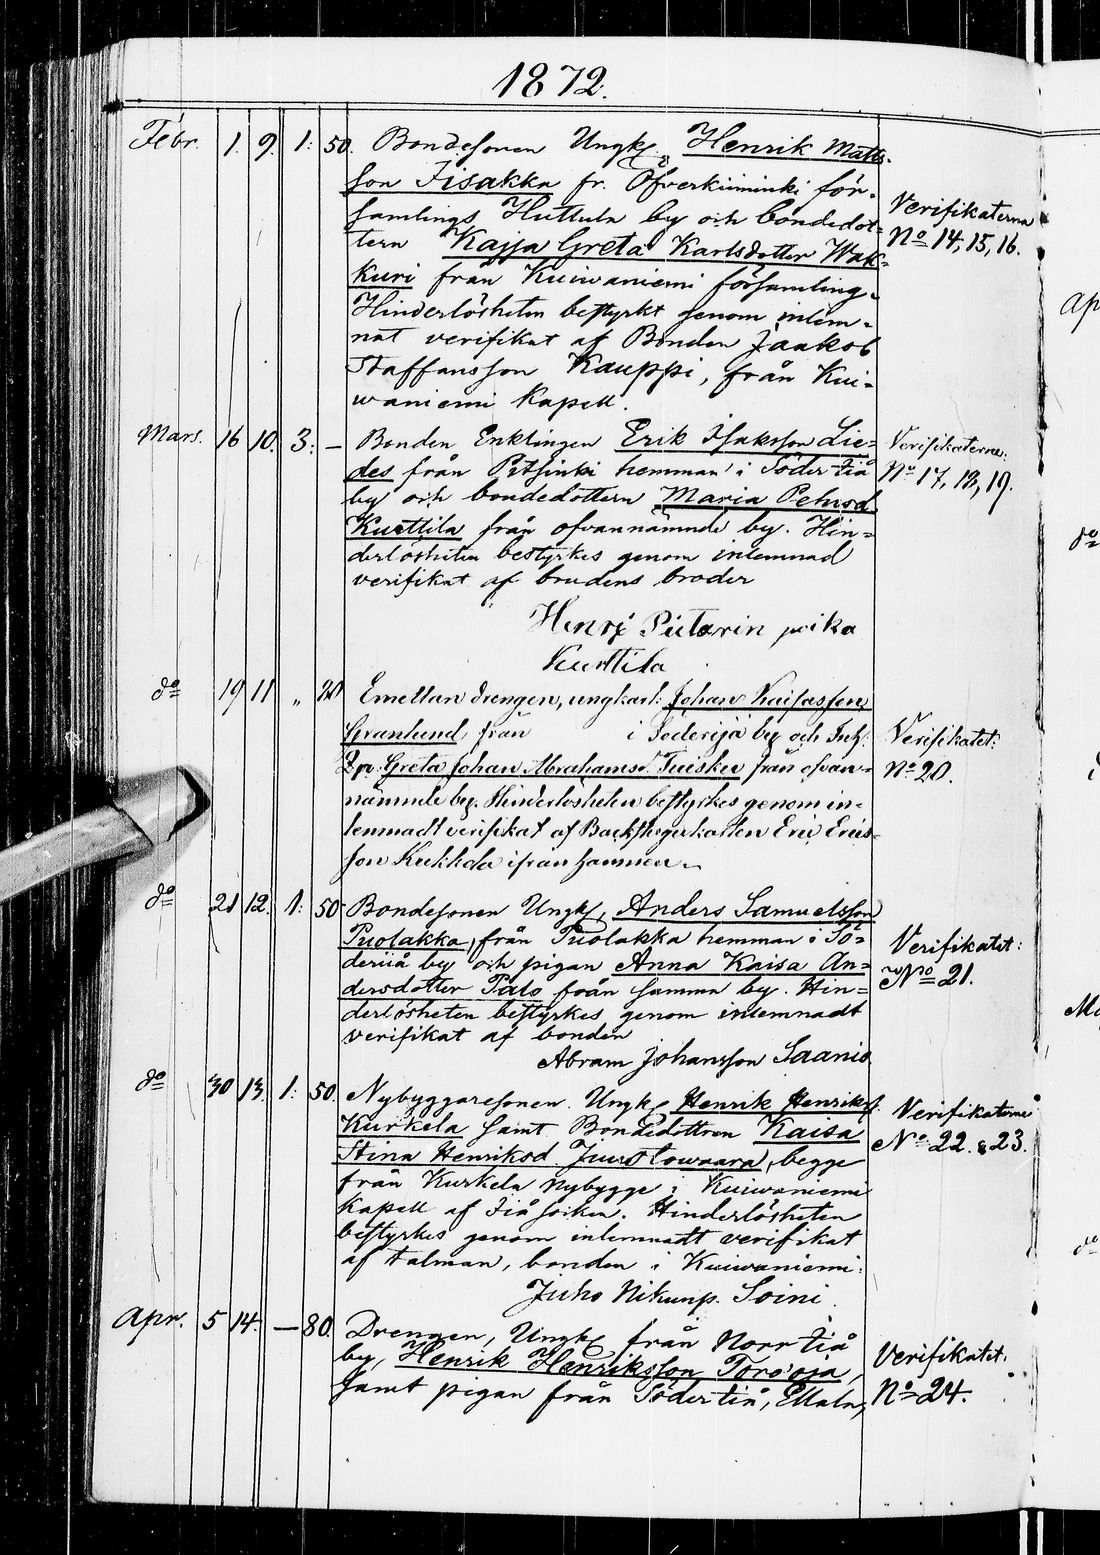 1872.
Febr. 1. 9. 1: 50. Bondesonen Ungk. Henrik Matts-
son Iisakka fr. Öfverkiiminki för-
samlings Huttula by och bondedot-
tern Kajja Greta Karlsdotter Wak-
kuri från Kuiwaniemi församling.
Hinderlösheten bestyrkt genom inlem-
nat verifikat af Bonden Jaakob
Staffansson Kauppi, från Kui-
waniemi Kapell.
Verifikaterna
No 14, 15, 16.
Mars. 16 10. 3: — Bonden Enklingen Erik Isaksson Lie-
des från Pitsinki hemman i Söder Iiå
by och bondedottern Maria Pehrsd.
Kurttila från ofvannämnde by. Hin-
derlösheten bestyrkes genom inlemnad
verifikat af brudens broder
Henrj Pietarin poika
Kurttila
Verifikaterne:
No 17, 18, 19.
do 19 11 „ 20 drengen, ungkarl: Johan
Granlund från i Söderijå by och Inh.
Greta Johan Abrahamsd. Tuisku från ofvan-
nämnde by. Hinderlösheten bestyrkes genom in-
lemnadt verifikat af Backstugukarlen Eric Erics-
son ifrån samma
Verifikatet:
No 20.
do 21 12. 1: 50 Bondesonen Ungk. Anders Samuelsson
Puolakka, från Puolakka hemman i Sö-
deriiå by och pigan Anna Kaisa An-
dersdotter Palo från samma by. Hin-
derlösheten bestyrkes genom inlemnadt
verifikat af bonden
Abram Johansson Saanio
Verifikatet:
No 21.
do 30 13. 1: 50. Nybyggaresonen Ungk. Henrik Henriks.
Kurkela samt Bondedottren Kaisa
Stina Henriksd. Juustowaara, begge
från Kurkela Nybygge i Kuiwaniemi
Kapell af Iiå soken. Hinderlösheten
bestyrkes genom inlemnadt verifikat
af talman, bonden i Kuiwaniemi:
Juho Nikunp. Soini.
Verifikaterne
No 22. & 23.
Apr. 5 14. — 80. Drengen, Ungk. från Norr Iiå
by, Henrik Henriksson Torooja,
samt pigan från Söder Iiå,
Verifikatet:
No 24.